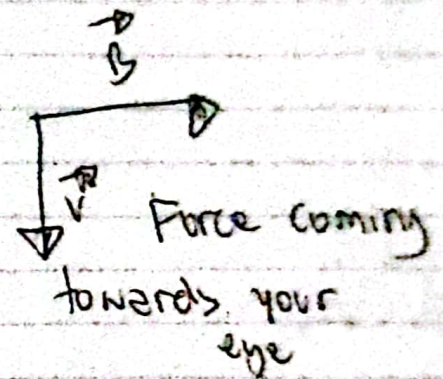 B
V
Force coming
towards your
eye